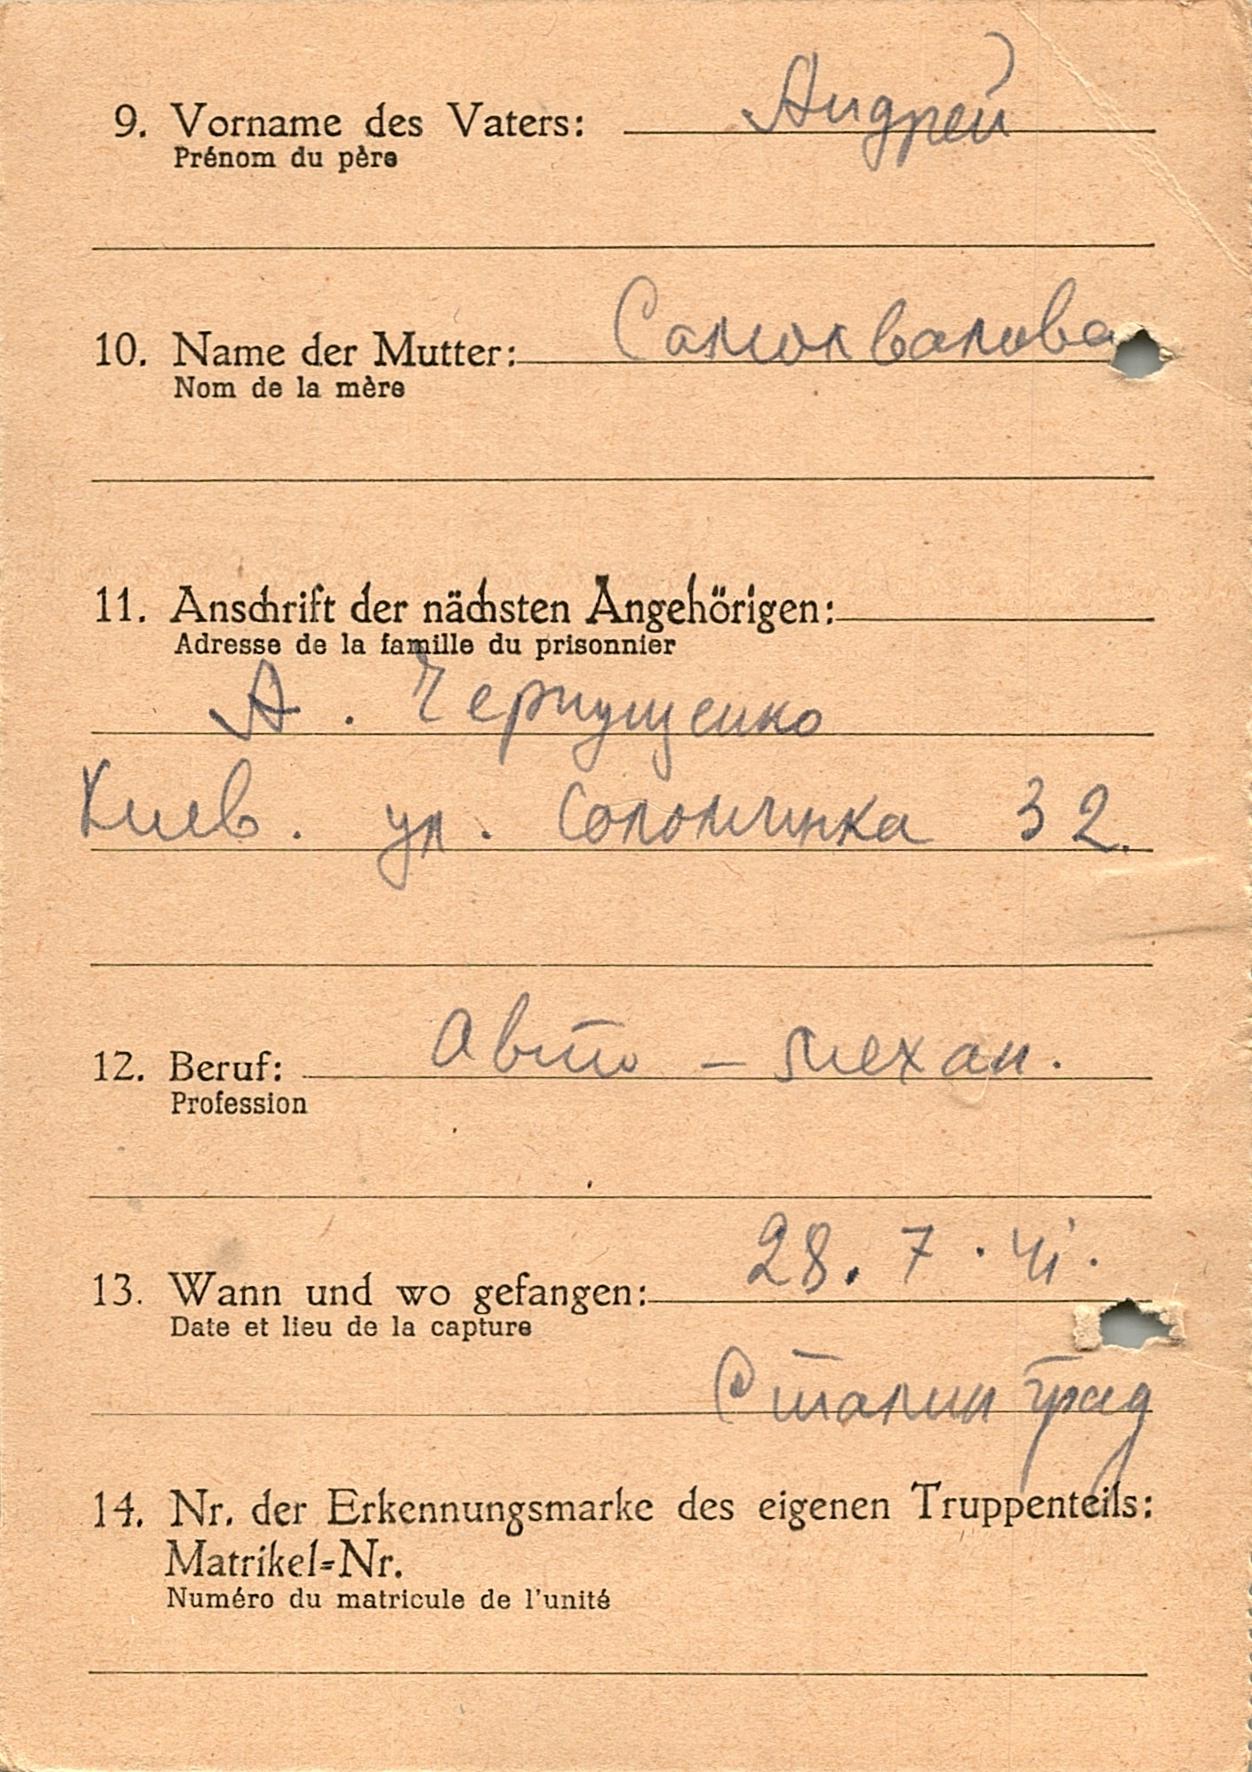 9. Vorname des Vaters: Андрей
Prénom du père
10. Name der Mutter: Самохвалова
Nom de la mère
11. Anschrift der nächsten Angehörigen:
Adresse de la famille du prisonnier
А. Чернущенко
Киев. ул. Соломинка 32.
12. Beruf: Авто – механ.
Profession
13. Wann und wo gefangen: 28. 7. 41.
Date et lieu de la capture
Сталинград
14. Nr. der Erkennungsmarke des eigenen Truppenteils:
Matrikel=Nr.
Numéro du matricule de l'unité